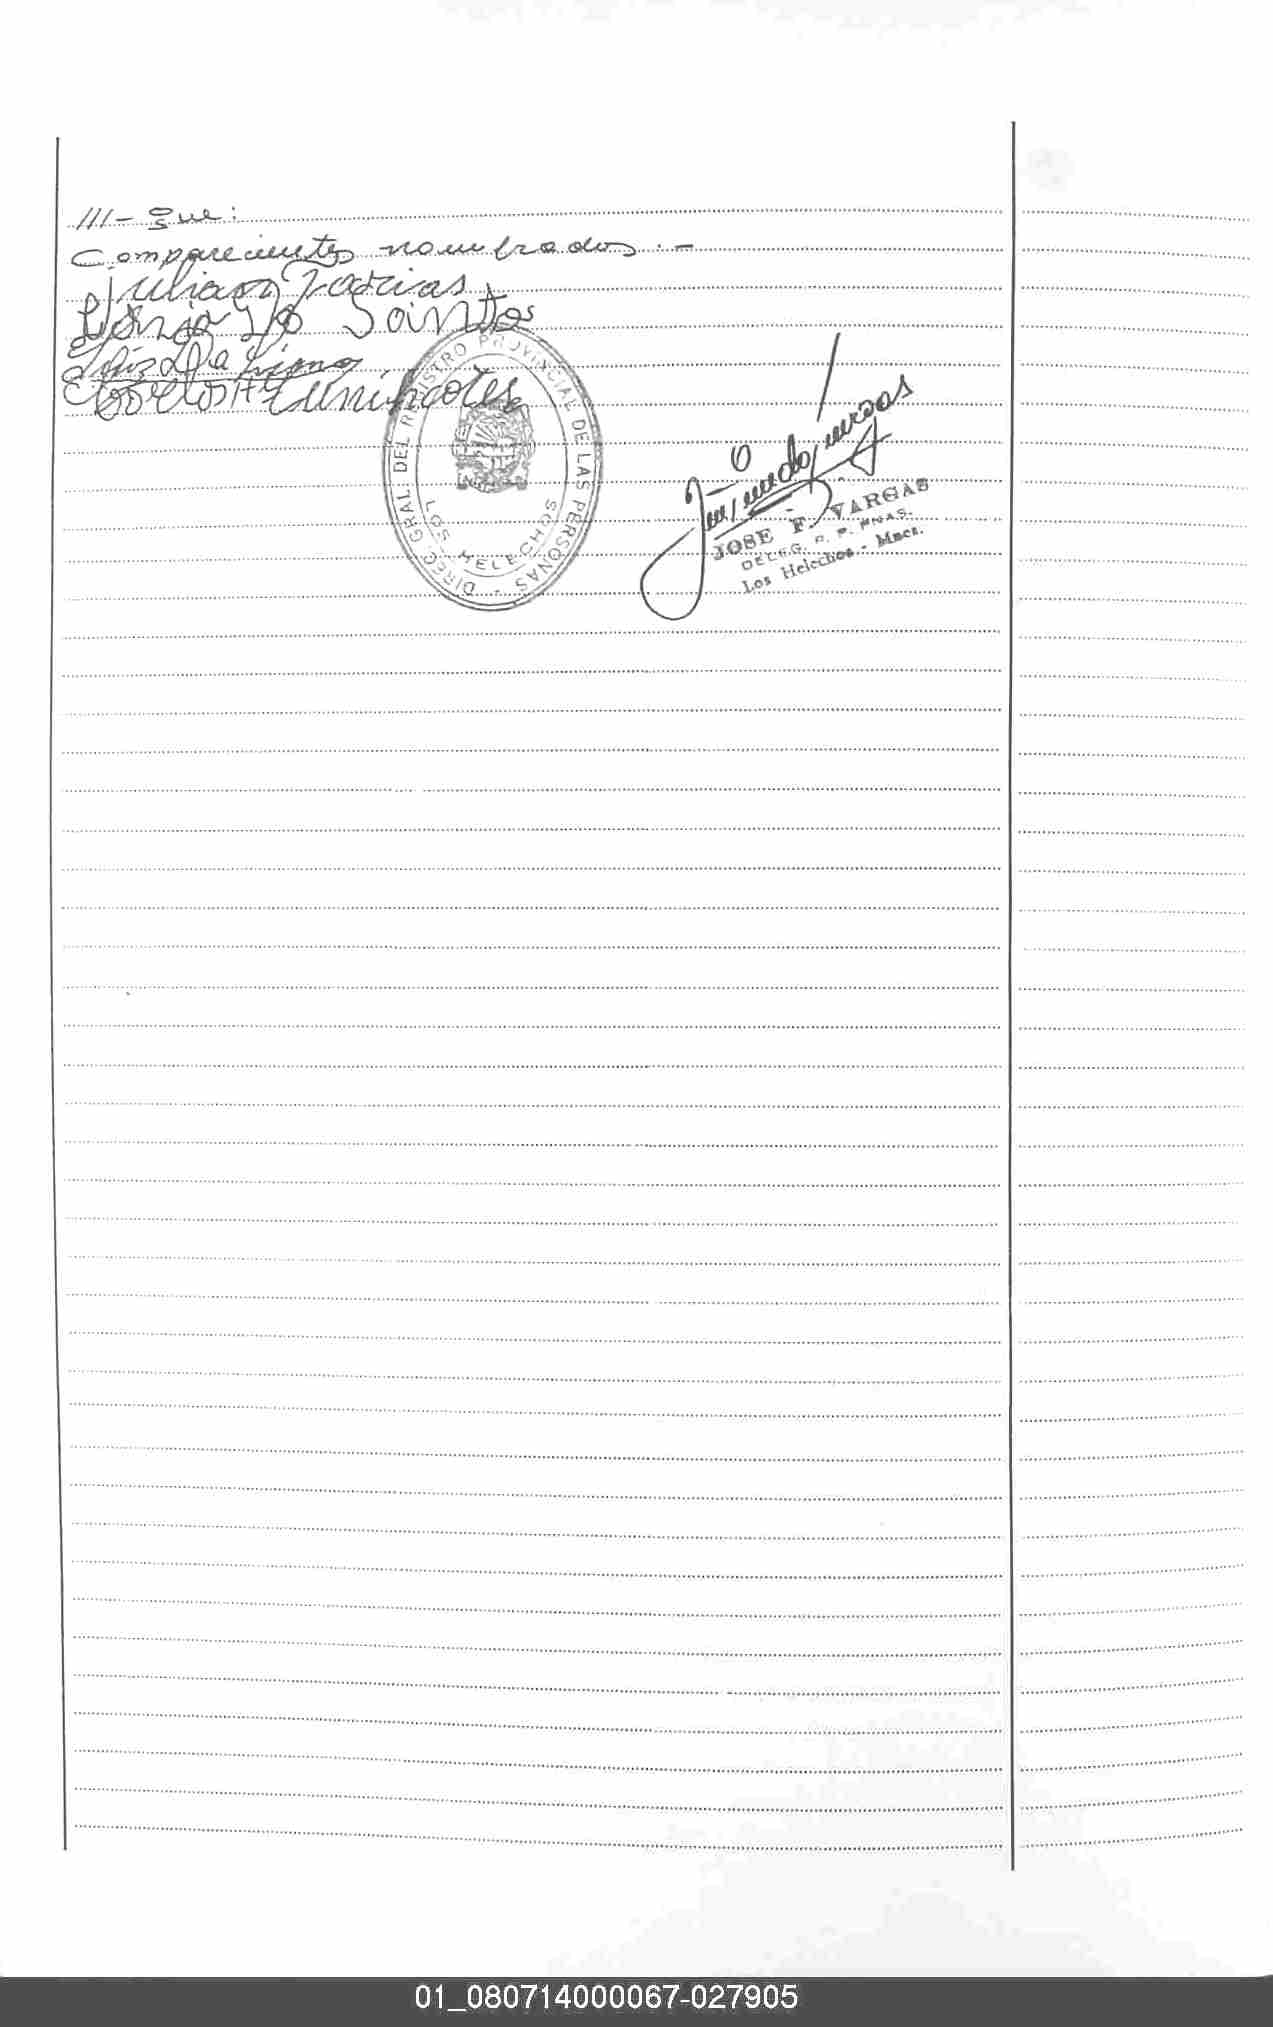 ///- que:
Comparecientes nombrados:-
Juliana Farias
Dos Santos
Luiz De Lima
DIREC. GRAL DEL REGISTRO PROVINCIAL DE LAS PERSONAS -
LOS HELECHOS
JOSE F. VARGAS
DELEG. R. P. PNAS.
Los Helechos - Mnes.
01_080714000067-027905